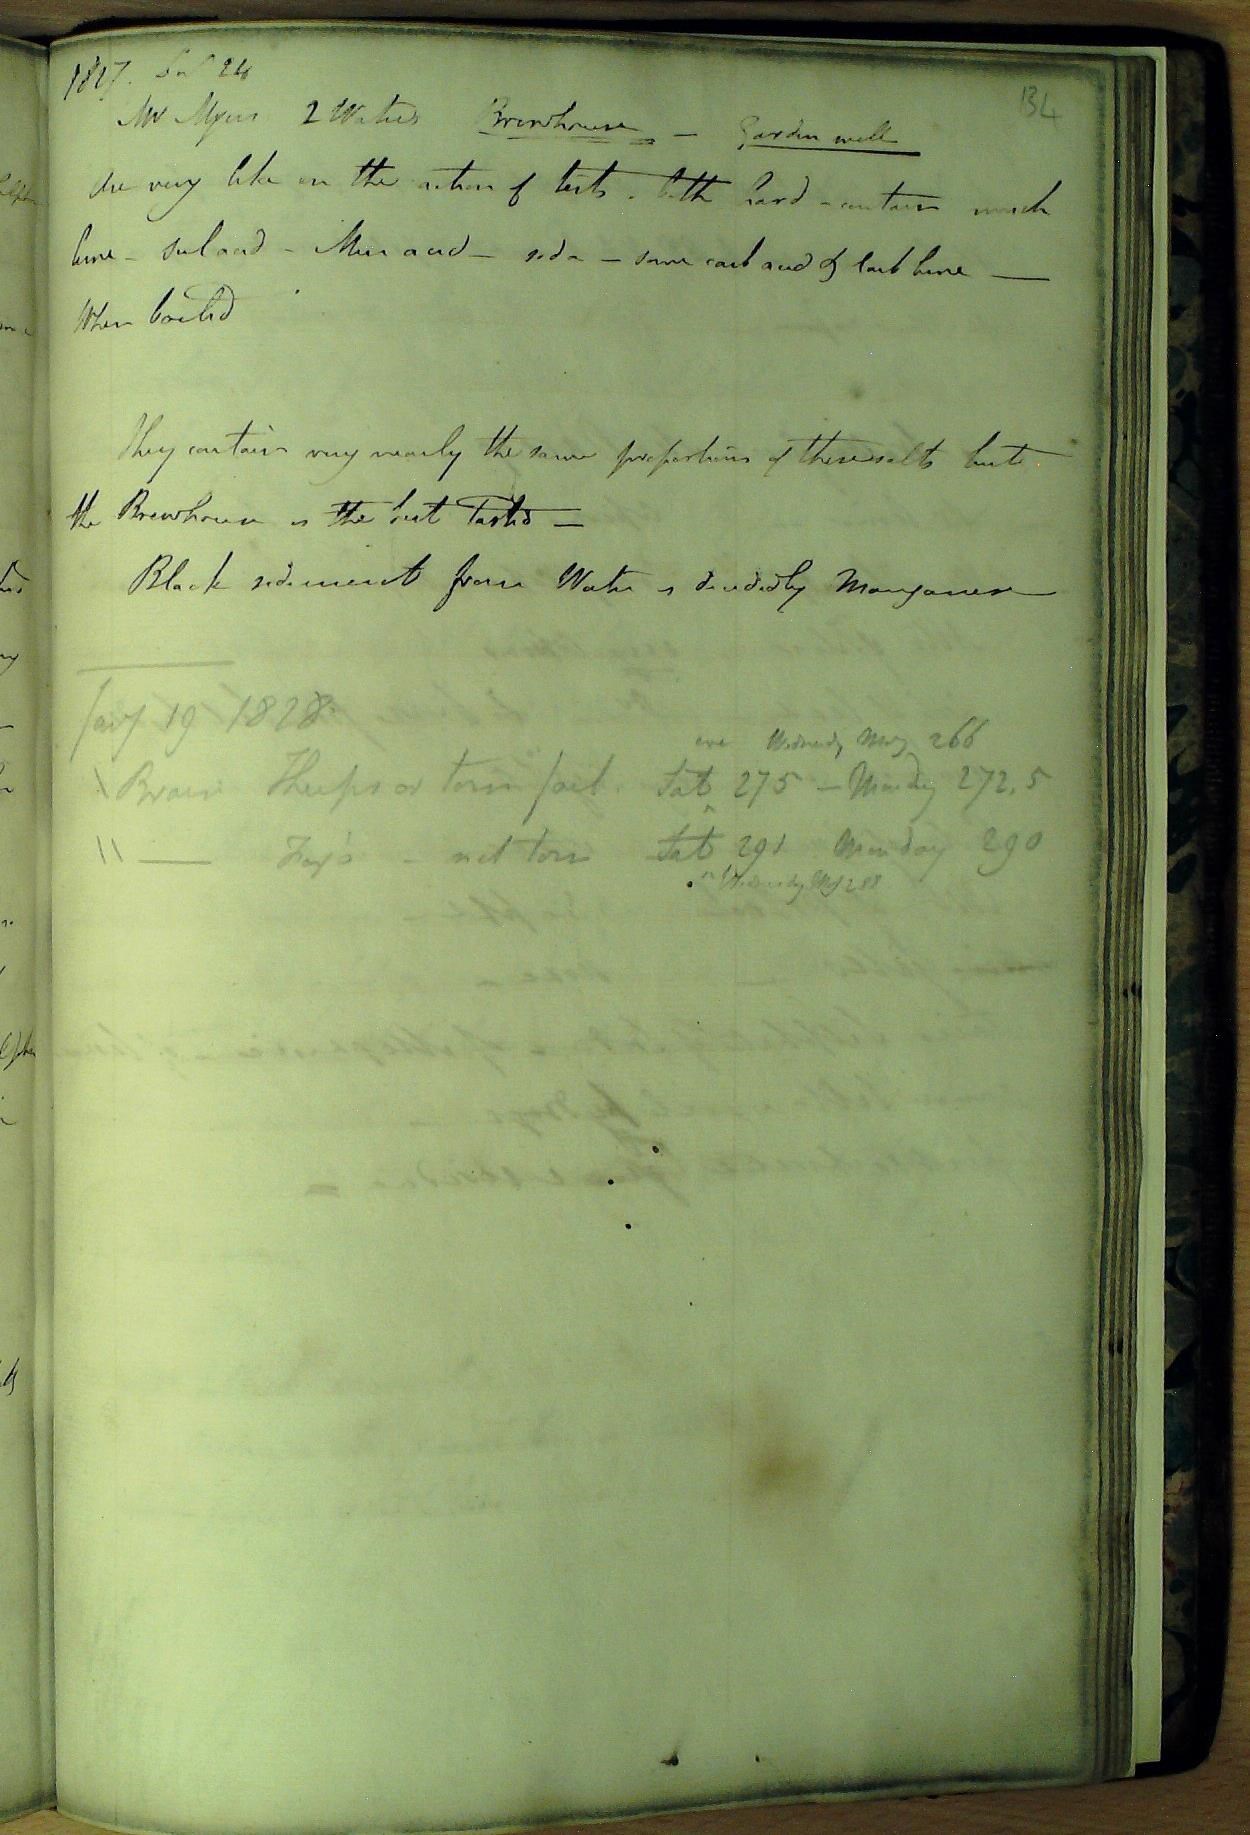 134
1827. Sat 24
Mr Myers 2 Waters Brewhouse - Garden well
Are very like in the action of tests. both hard - contain much
lime - sul acid - Mur acid - soda - some carb acid & carb lime -
When boiled
They contain very nearly the same proportions of these salts but
the Brewhouse is the best Tasted -
Black sediment from Water is decidedly Manganese
Jany 19 1828.
Wednesday Mg 266
\ Brown or torn foil. Sat 275 - Monday 272.5
\\ — - not torn Sat 291 Monday 290
Wednesday Mg 288